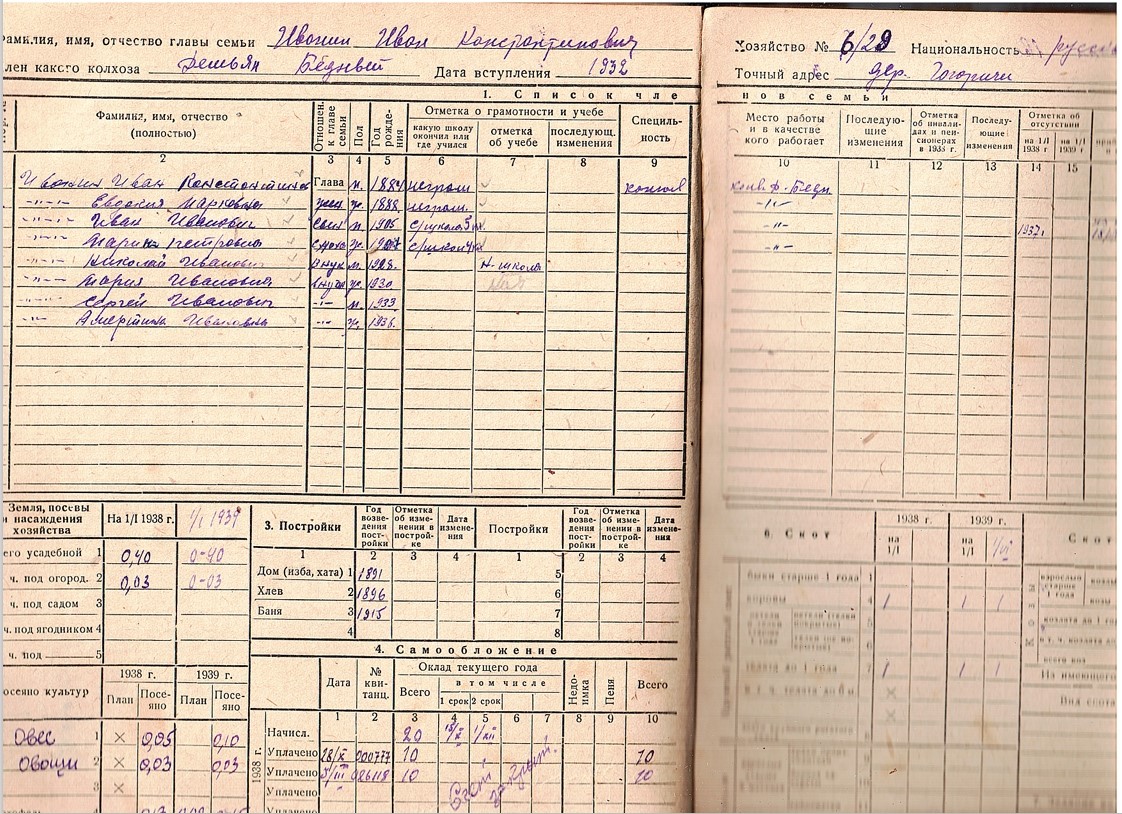 Фамилия, имя, отчество главы семьи Ивонин Иван Константинович
Член какого колхоза Демьян Бедный Дата вступления 1932
Хозяйство № 6/29 Национальность русск
Точный адрес дер.
1. Список чле
нов семьи
Фамилия, имя, отчество (полностью) Отношен. к главе семьи Пол Год рождения Отметка о грамотности и учебе Специльность
какую школу окончил или где учился отметка об учебе последующ. изменения
Место работы и в качестве кого работает Последующие изменения Отметка об инвалидах и пенсионерах в 1938 г. Последующие изменения Отметка об отсутствии
на 1/I 1938 г. на 1/I 1939 г.
2 3 4 5 6 7 8 9
10 11 12 13 14 15
Ивонин Иван Константинов Глава м. 1884 неграм
-"- Евдокия Марковна жена ж. 1888 неграм.
-"- Иван Иванович сын м. 1905 с/школа 3 1937г.
-"- Марина Петровна сноха ж.
-"- Николай Иванович внук м. 1928. Н-школа
-"- Мария Ивановна внучка ж. 1930
-"- Сергей Иванович -"- м. 1933
-"- Ивановна -"- ж. 1936.
Земля, посевы и насаждения хозяйства На 1/I 1938 г. 1/I 1939
его усадебной 1 0,40 0-40
ч. под огород. 2 0,03 0-03
ч. под садом 3
ч. под ягодником 4
ч. под 5
1938 г. 1939 г.
посеяно культур План Посеяно План Посеяно
Овес 1 × 0,05 0,10
Овощи 2 × 0,03 0,03
3 ×
3. Постройки Год возведения постройки Отметка об изменении в постройке Дата изменения Постройки Год возведения постройки Отметка об изменении в постройке Дата изменения
1 2 3 4 1 2 3 4
Дом (изба, хата) 1 1891 5
Хлев 2 1896 6
Баня 3 1915 7
4 8
4. Самообложение
Дата № квитанц. Оклад текущего года Недоимка Пеня Всего
Всего в том числе
1 срок 2 срок
1 2 3 4 5 6 7 8 9 10
1938 г.
Начисл. 20 15/X 1/XII
Уплачено 28/X 000777 10 10
Уплачено 5/III 026118 10 10
Уплачено
Уплачено
Счет закрыт.
6. Скот 1938 г. 1939 г. Скот
на 1/I на 1/I 1/VI
быки старше 1 года 1
коровы 4 1 1 1
телята до 1 года 7 1 1 1
КОЗЫ
взрослые старше 1 года
козлята до 1 года